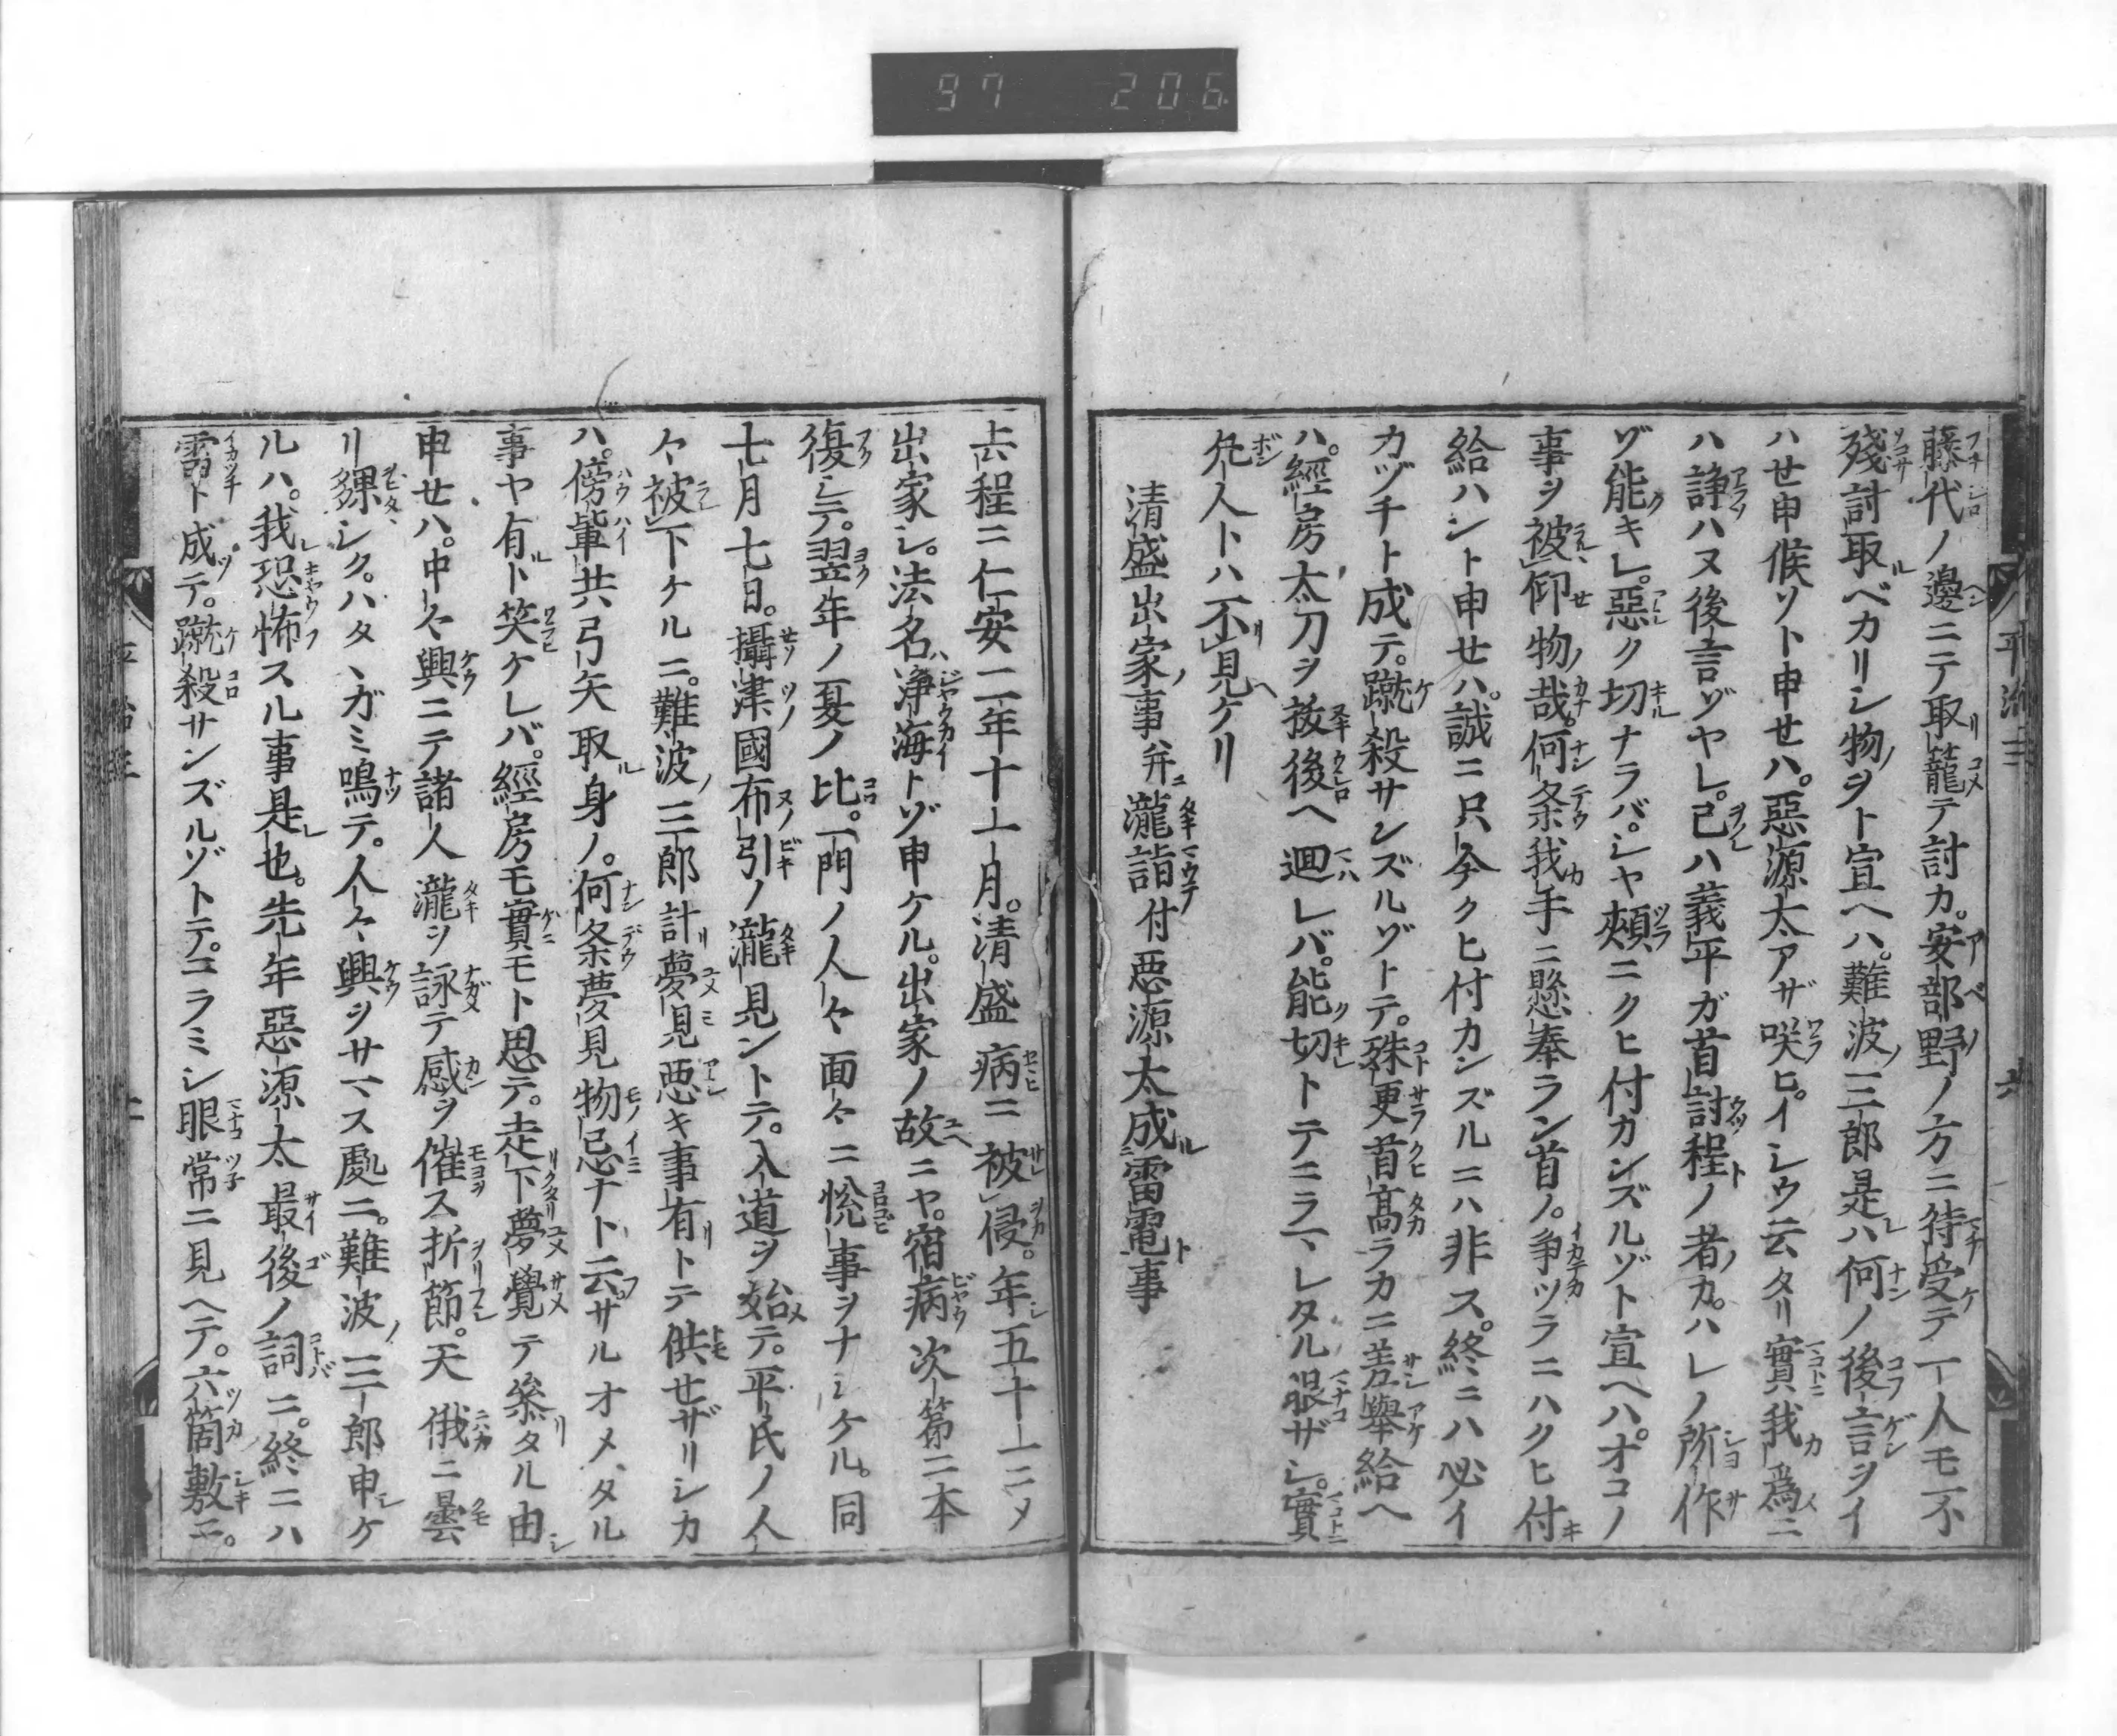 97 206
藤代ノ邊ニテ取籠テ討カ。安部野ノ方ニ待受テ一人モ不
殘討取ベカリシ物ヲト宣ヘハ。難波三郎是ハ何ノ後言ヲイ
ハせ申候ソト申せハ。惡源太アザ咲ヒ。イシウ云タリ實我爲ニ
ハ諍ハヌ後言ゾヤレ。己ハ義平ガ首討程ノ者カ。ハレノ所作
ゾ能キレ。惡ク切ナラバ。シヤ頰ニクヒ付カンズルゾト宣ヘハ。オコノ
事ヲ被仰物哉。何条我手ニ懸奉ラン首ノ。爭ツラニハクヒ付
給ハント申せハ。誠ニ只今クヒ付カンズルニハ非ス。終ニハ必イ
カヅチト成テ。蹴殺サンズルゾトテ。殊更首髙ラカニ差擧給ヘ
ハ。經房太刀ヲ拔後ヘ廻レバ。能切トテニラマレタル眼ザシ。實
凡人トハ不見ケリ
清盛出家事并瀧詣付惡源太成雷電事
去程ニ仁安二年十一月。清盛病ニ被侵。年五十一ニメ
出家シ。法名浄海トゾ申ケル。出家ノ故ニヤ。宿病次第ニ本
復シテ。翌年ノ夏ノ比。一門ノ人々面々ニ悅事ヲナシケル。同
七月七日。攝津國布引ノ瀧見ントテ。入道ヲ始テ。平氏ノ人
々被下ケルニ。難波三郎計夢見惡キ事有トテ供せザリシカ
ハ。傍輩共弓矢取身ノ。何条夢見物忌ナト云。サルオメタル
事ヤ有ト笑ケレバ。經房モ實モト思テ。走下夢覺テ參タル由
申せハ。中々興ニテ諸人瀧ヲ詠テ感ヲ催ス折節。天俄ニ曇
リ夥シク。ハタヽガミ鳴テ。人々興ヲサマス處ニ。難波三郎申ケ
ルハ。我恐怖スル事是也。先年惡源太最後ノ詞ニ。終ニハ
雷ト成テ。蹴殺サンズルゾトテ。ニラミシ眼常ニ見ヘテ。六箇敷ニ。